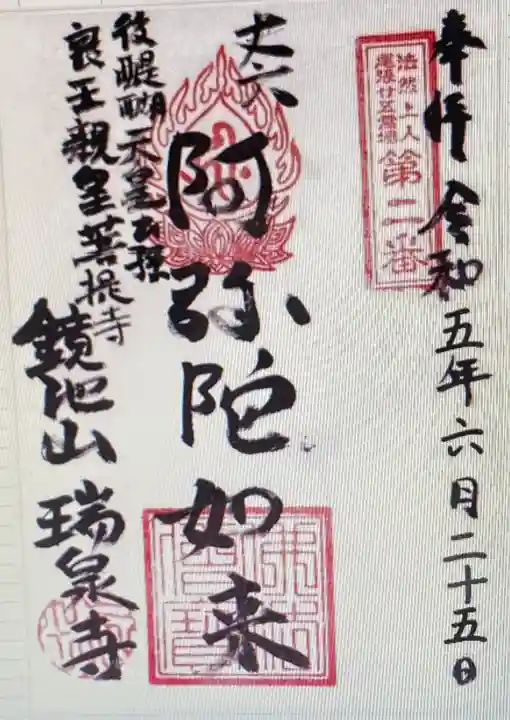 奉拝 令和五年六月二十五日
法然上人
尾張廿五霊場
第二番
丈六
阿弥陀如来
後醍醐天皇
良王親皇菩提寺
鏡池山 瑞泉寺